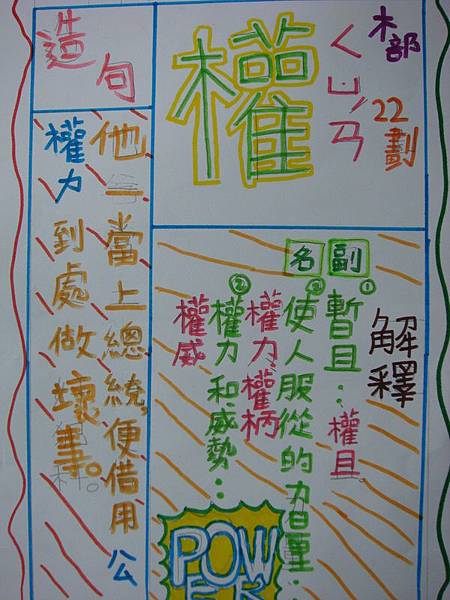 木部
22劃
ㄑㄩㄢˊ
權
解釋
副
①暫且:權且。
名
①使人服從的力量:
權力、權柄
②權力和威勢:
權威
POW
ER
造句
他一當上總統,便借用公
權力到處做壞事。